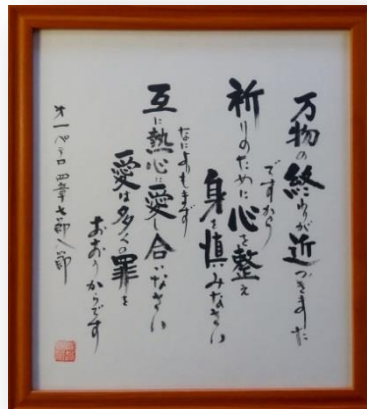 万物の終わりが近づきました
ですから
祈りのために心を整え
身を慎みなさい
なによりもまず
互に熱心に愛し合いなさい
愛は多くの罪を
おおうからです
オ一ペテロ四章七節八節